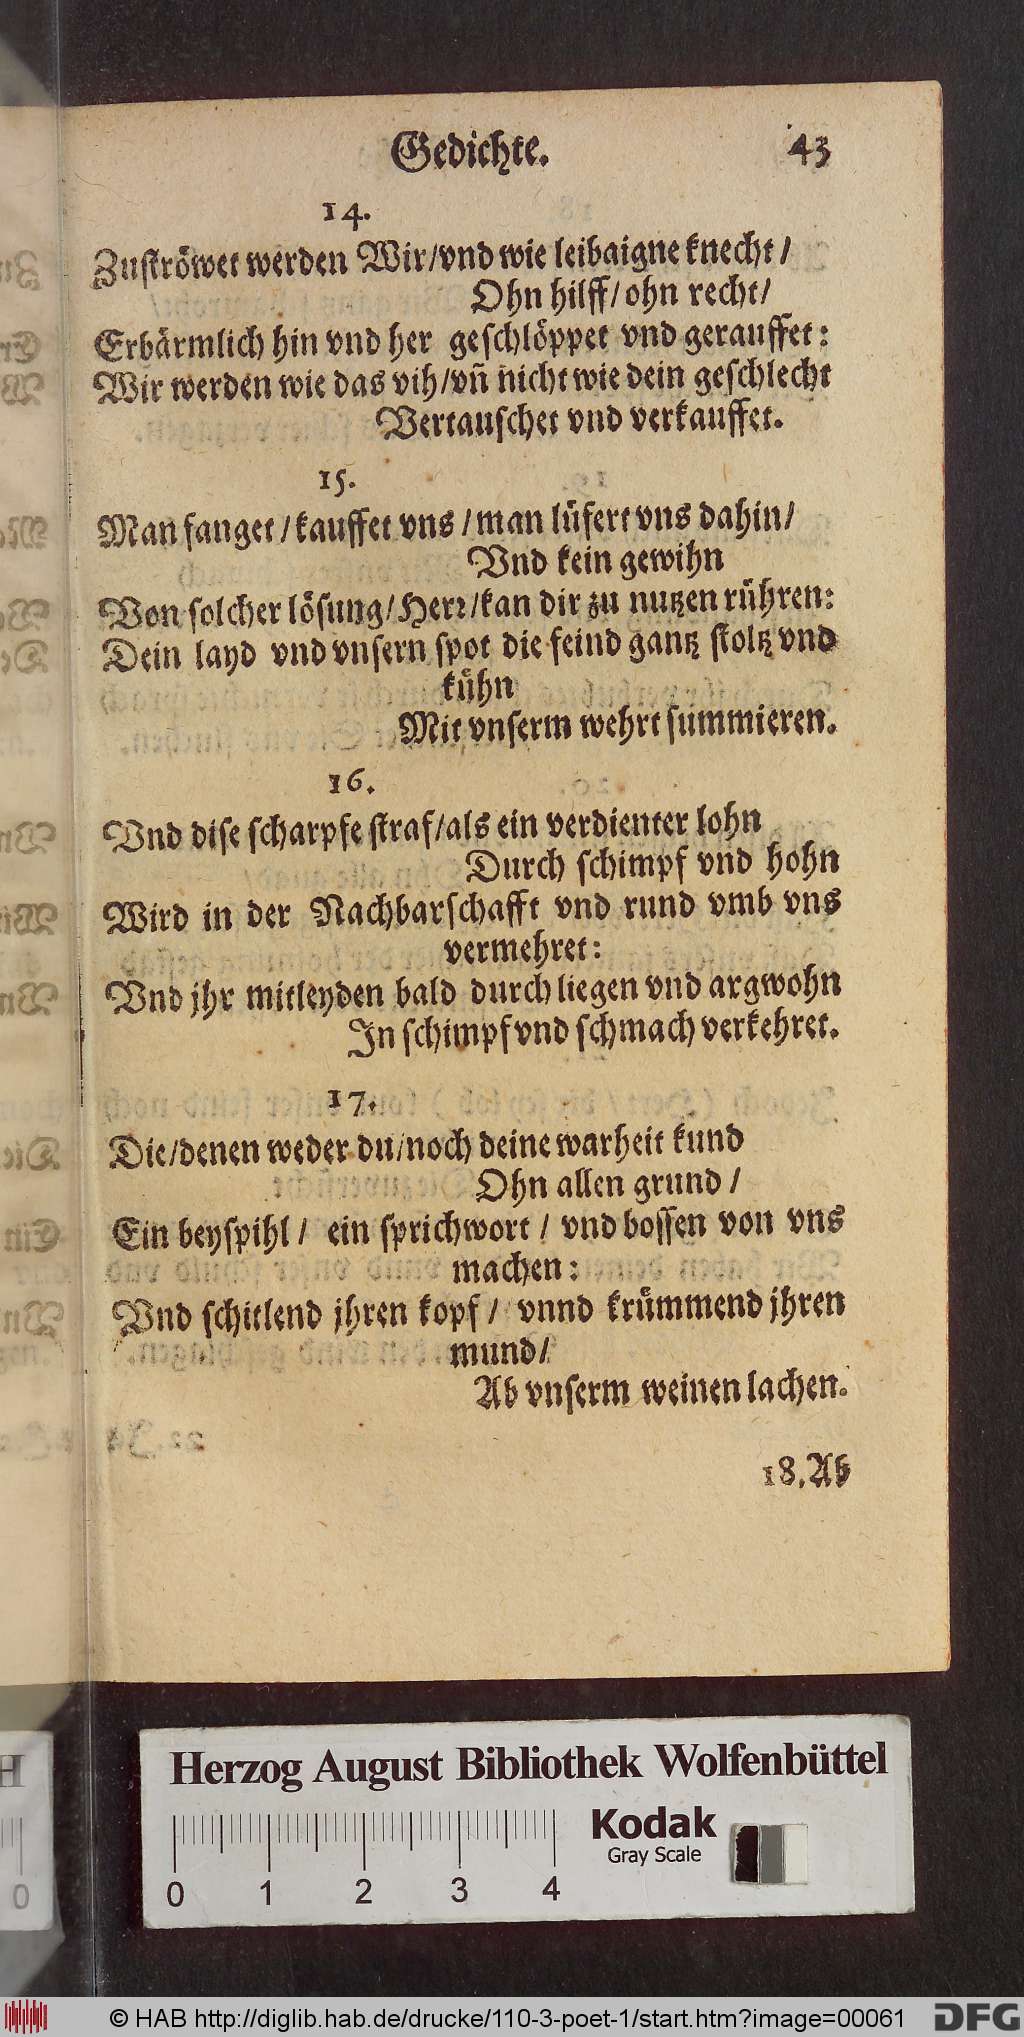 Gedichte. 43
14.
Zuströwet werden Wir/vnd wie leibaigne knecht/
Ohn hilff/ohn recht/
Erbärmlich hin vnd her geschlöppet vnd gerauffet:
Wir werden wie das vih/vñ nicht wie dein geschlecht
Vertauschet vnd verkauffet.
15.
Man fanget/kauffet vns/man lüfert vns dahin/
Vnd kein gewihn
Von solcher lösung/Herr/kan dir zu nutzen rühren:
Dein layd vnd vnsern spot die feind gantz stoltz vnd
kühn
Mit vnserm wehrt summieren.
16.
Vnd dise scharpfe straf/als ein verdienter lohn
Durch schimpf vnd hohn
Wird in der Nachbarschafft vnd rund vmb vns
vermehret:
Vnd jhr mitleyden bald durch liegen vnd argwohn
In schimpf vnd schmach verkehret.
17.
Die/denen weder du/noch deine warheit kund
Ohn allen grund/
Ein beyspihl/ ein sprichwort/ vnd bossen von vns
machen:
Vnd schitlend jhren kopf/ vnnd krümmend jhren
mund/
Ab vnserm weinen lachen.
18.Ab
Herzog August Bibliothek Wolfenbüttel
Kodak
Gray Scale
0 1 2 3 4
© HAB http://diglib.hab.de/drucke/110-3-poet-1/start.htm?image=00061
DFG